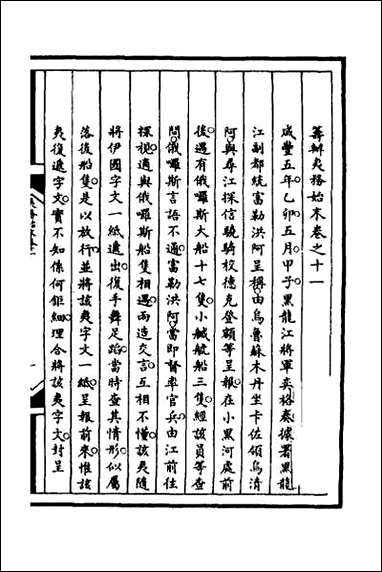 籌辦夷務始末卷之十一
咸豐五年乙卯五月甲子黑龍江將軍奕格奏據署黑龍
江副都統富勒洪阿呈稱由烏魯蘇木丹坐卡佐領烏清
阿與尋江探信驍騎校德克登額等呈報在小黑河處前
後遇有俄囉斯大船十七隻小艤航船三隻經該員等查
問俄囉斯言語不通富勒洪阿當即督率官兵由江前往
探視適與俄囉斯船隻相遇兩造交言互相不懂該夷隨
將伊國字文一紙遺出復手舞足蹈當時查其情形似屬
落後船隻是以放行並將該夷字文一紙呈報前來惟該
夷復遞字文實不知係何鉅細理合將該夷字文封呈